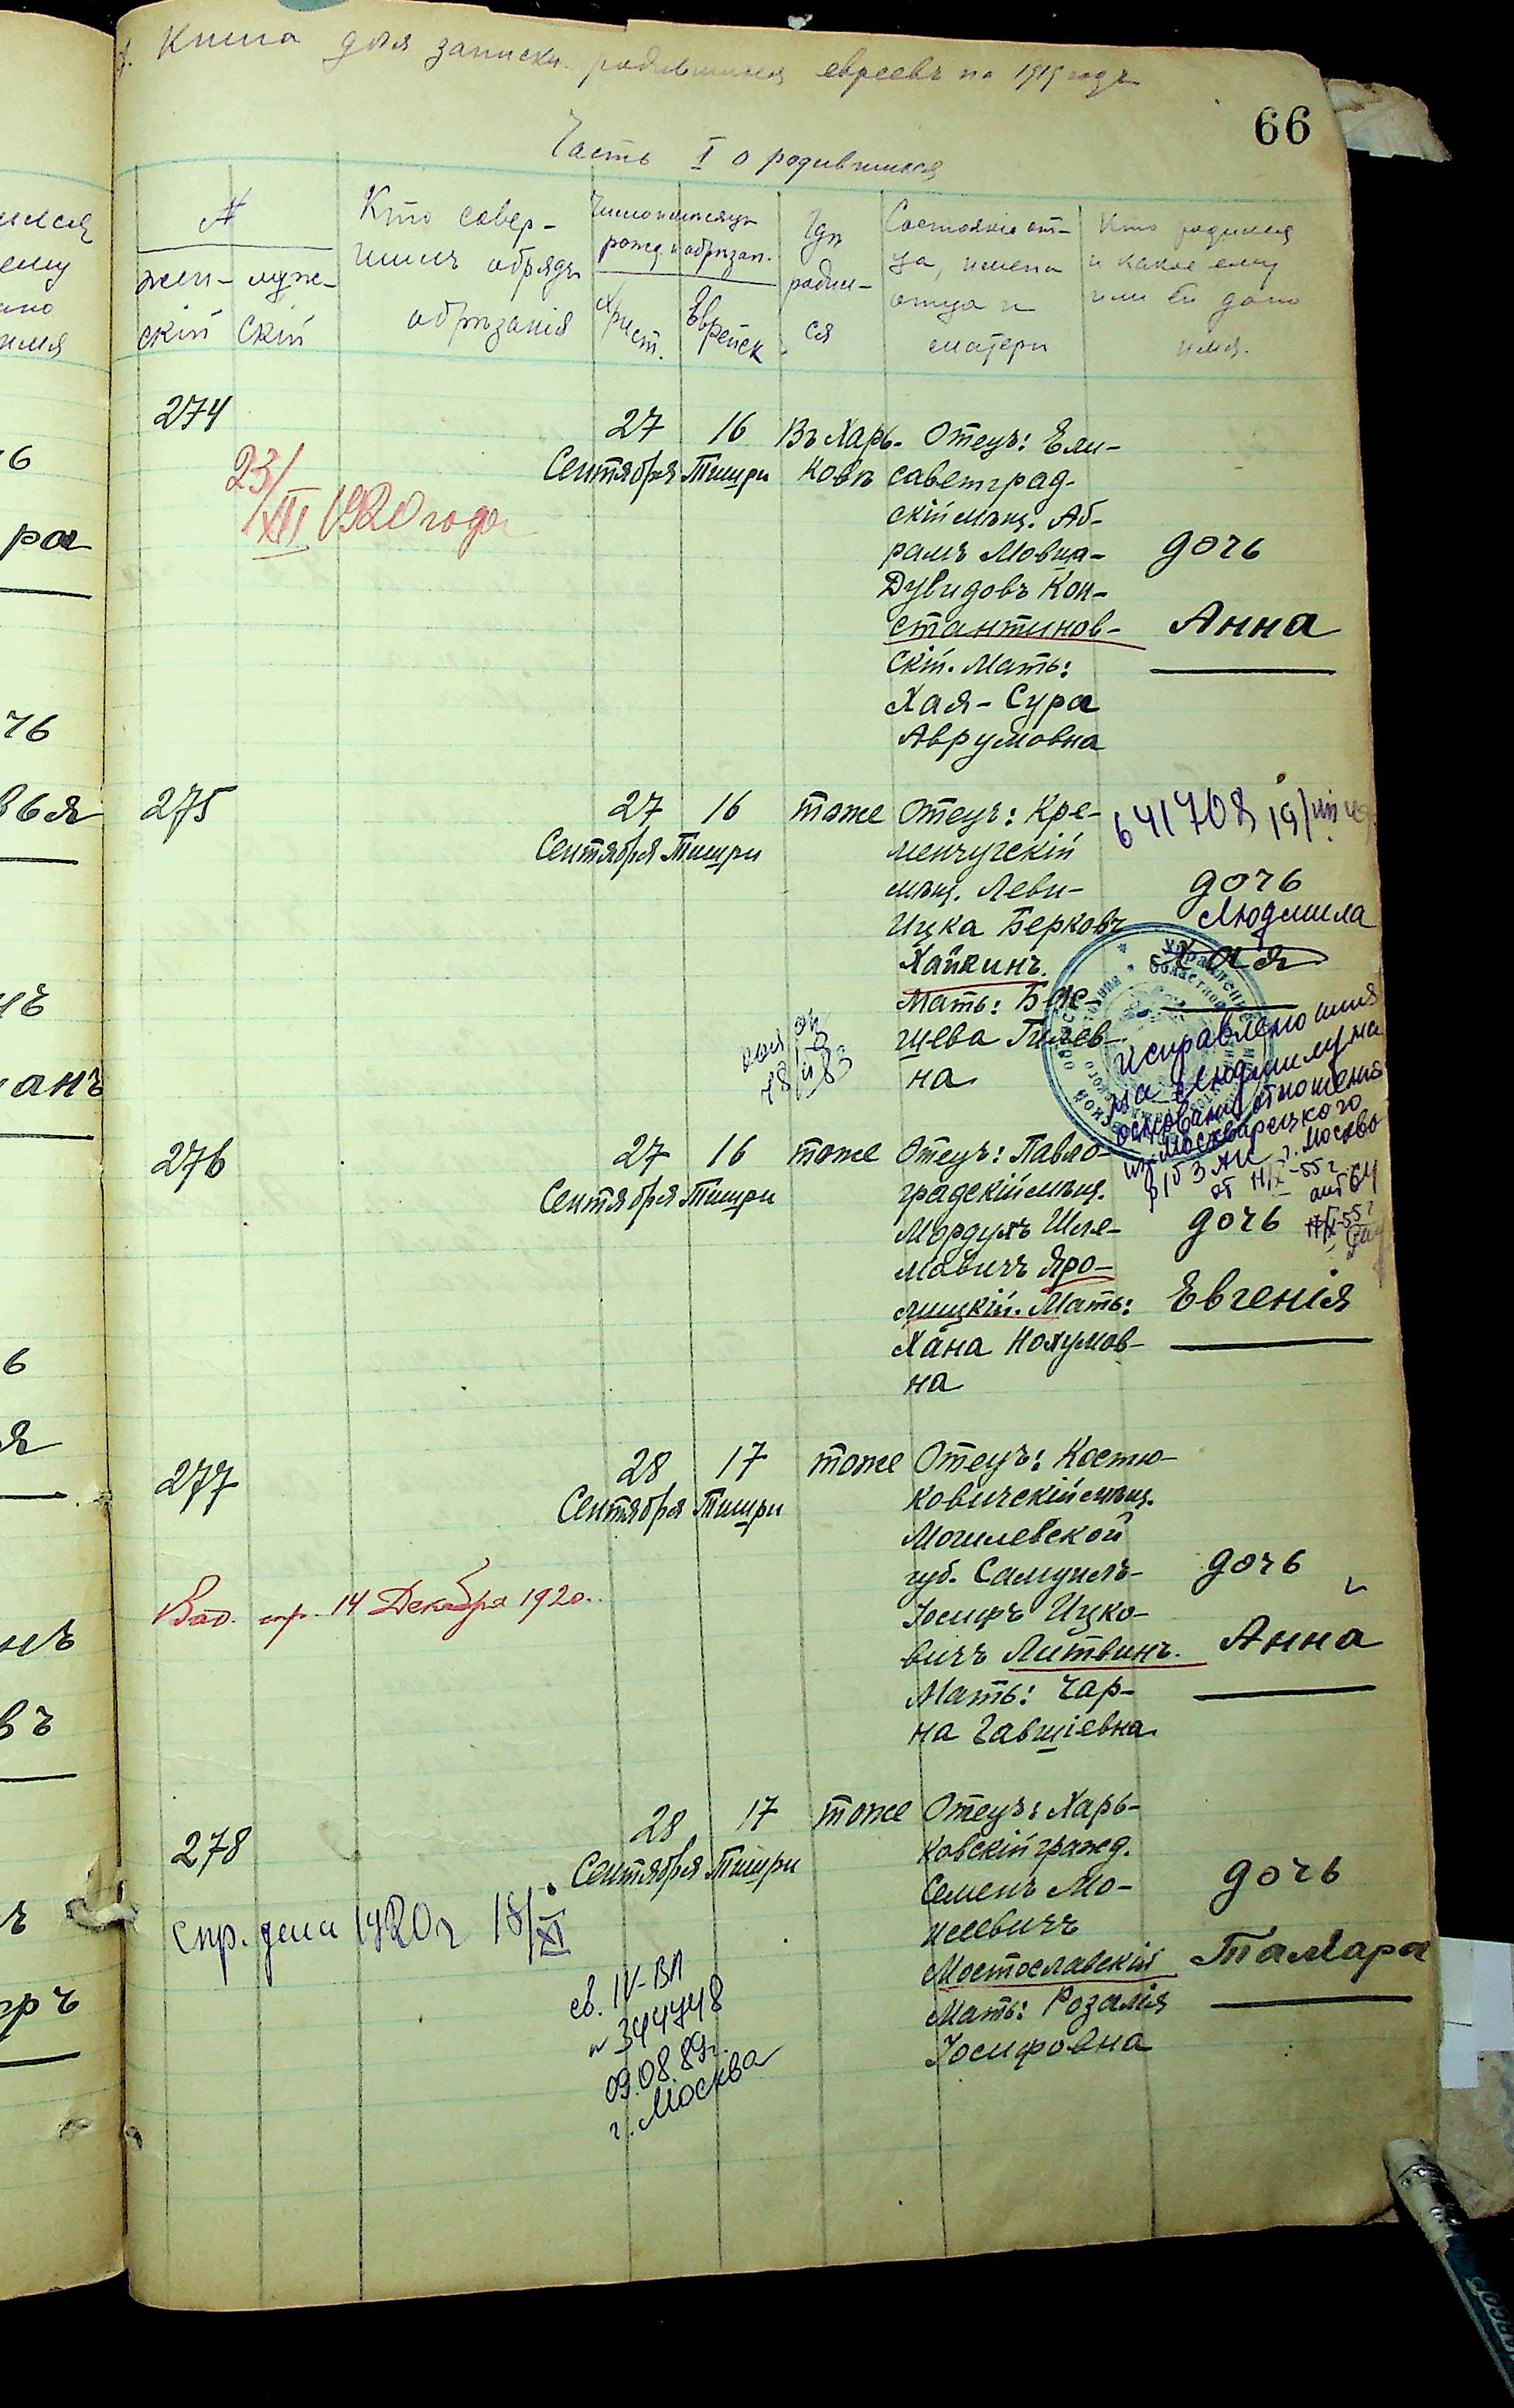 Книга для записки родившихся евреевъ на 1919 годъ
66
Часть I о родившихся
№
жен-
скій
муж-
скій
Кто совер-
шилъ обрядъ
обрѣзанія
Число и мѣсяцъ
рожд. и обрѣзан.
Христ.
Еврейск.
Гдѣ
родил-
ся
Состояніе от-
ца, имена
отца и
матери
Кто родился
и какое ему
или ей дано
имя.
274
23/XII 1920 года
27
Сентября
16
Тишри
Въ Харь-
ковѣ
Отецъ: Ели-
саветград-
скій мѣщ. Аб-
рамъ Мовша-
Дувидовъ Кон-
стантинов-
скій. Мать:
Хая-Сура
Аврумовна
дочь
Анна
275
27
Сентября
16
Тишри
тоже
Отецъ: Кре-
менчугскій
мѣщ. Леви-
Ицка Берковъ
Хайкинъ.
Мать: Бас-
шева Гилев-
на
641708 19/VIII
дочь
Людмила
Хая
исправлено имя
на Людмилу на
основании отношения
из Москворецкого
г. Москвы
276
27
Сентября
16
Тишри
тоже
Отецъ: Павло-
градскій мѣщ.
Мордухъ Шле-
мовичъ Яро-
лицкій. Мать:
Хана Нохумов-
на
дочь
Евгенія
277
Выд. спр. 14 Декабря 1920.
28
Сентября
17
Тишри
тоже
Отецъ: Костю-
ковичскій мѣщ.
Могилевской
губ. Самуилъ-
Іосифъ Ицко-
вичъ Литвинъ.
Мать: Чар-
на Гавшіевна
дочь
Анна
278
28
Сентября
17
Тишри
тоже
Отецъ: Харь-
ковскій гражд.
Семенъ Мо-
исеевичъ
Мостославскій
Мать: Розалія
Іосифовна
дочь
Тамара
спр. дана 1920 г 18/XI
св. IV-ВЛ
№ 344748
09.08.89г.
г. Москва